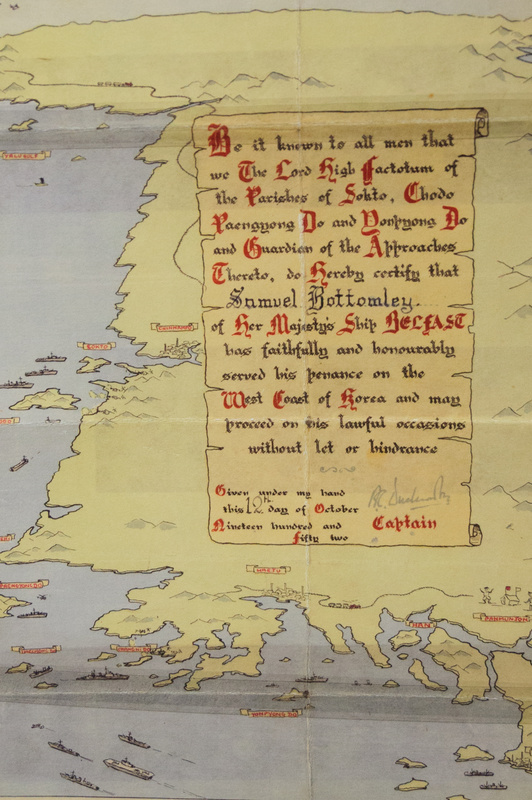 Be it known to all men that
we The Lord High Factotum of
the Parishes of Sokto, Chodo
Paengyong Do and Yonpyong Do
and Guardian of the Approaches
Thereto, do Hereby certify that
Samuel Bottomley
of Her Majesty's Ship BELFAST
has faithfully and honourably
served his penance on the
West Coast of Korea and may
proceed on his lawful occasions
without let or hindrance
Given under my hand
this 12th day of October
Nineteen hundred and
Fifty two
Captain
CHINNAMPO
SOKTO
HAEJU
HAN
PANMUNJOM
YONPYONG DO